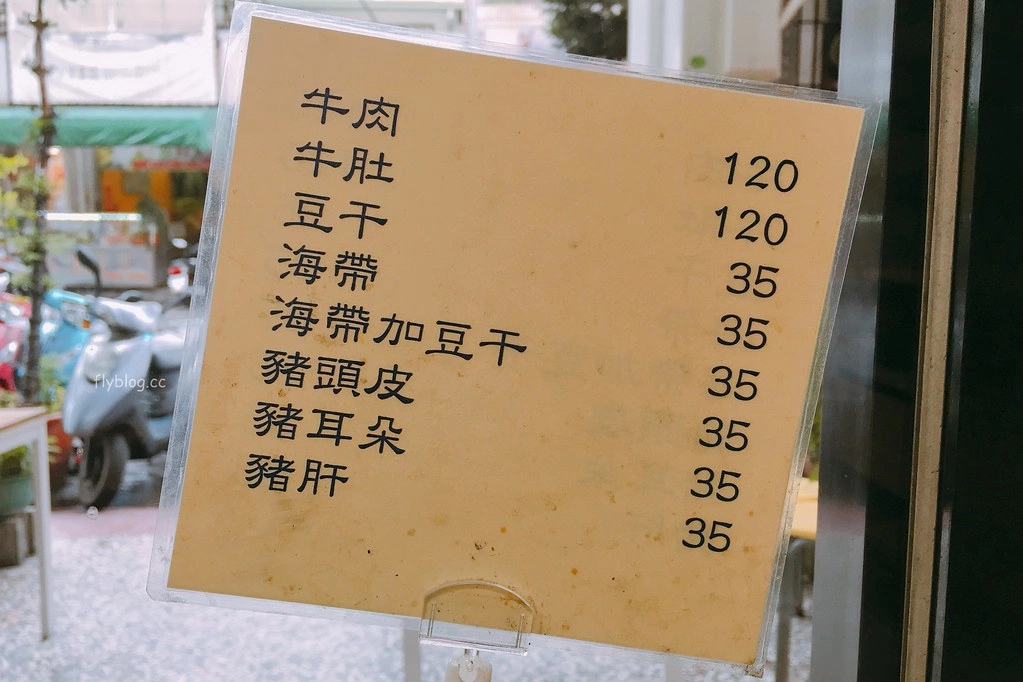 牛肉 120
牛肚 120
豆干 35
海帶 35
海帶加豆干 35
豬頭皮 35
豬耳朵 35
豬肝 35
flyblog.cc